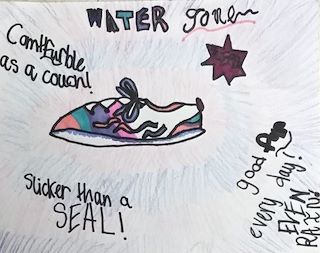 WATER
Comtfurble
as a couch!
Slicker than a
SEAL!
good for
every day!
EVEN
RAIN!